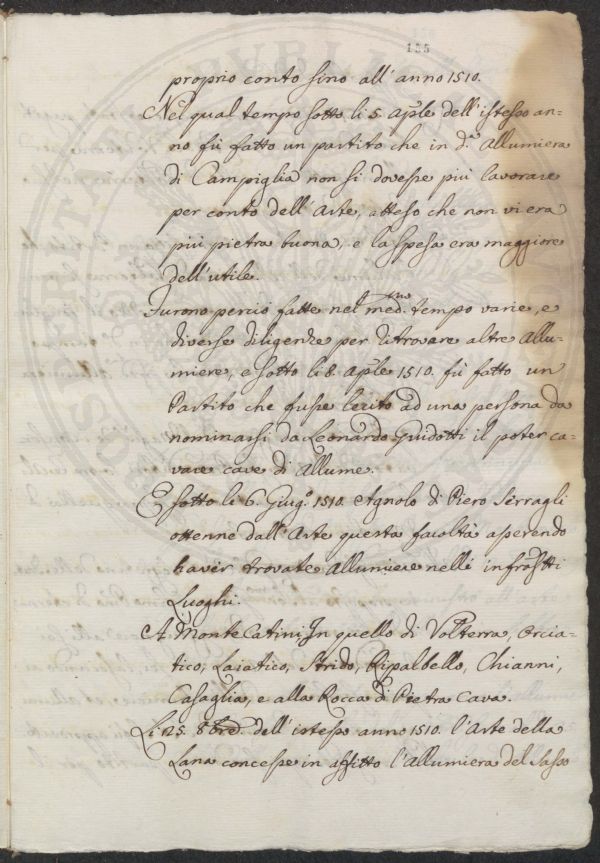 135
proprio conto sino all'anno 1510.
Nel qual tempo sotto li 5. aple dell'istesso an-
no fù fatto un partito che in d.a Allumiera
di Campiglia non si dovesse più lavorare
per conto dell'Arte, atteso che non vi era
più pietra buona, e la spesa era maggiore
dell'utile.
Furono perciò fatte nel med.mo tempo varie, e
diverse diligenze per ritrovare altre Allu-
miere, e sotto li 8. aple 1510. fù fatto un
Partito che fusse lecito ad una persona da
nominarsi da Leonardo Guidotti il poter ca-
vare cave di Allume.
E sotto li 6. Giug.o 1510. Agnolo di Piero Serragli
ottenne dall'Arte questa facoltà asserendo
haver trovate Allumiere nelli infrascritti
Luoghi.
A Monte Catini In quello di Volterra, Orcia-
tico, Laiatico, Strido, Ripalbello, Chianni,
Casaglia, e alla Rocca di Pietra Cava.
Li 25. 8bre dell'istesso anno 1510. l'Arte della
Lana concesse in affitto l'Allumiera del Sasso